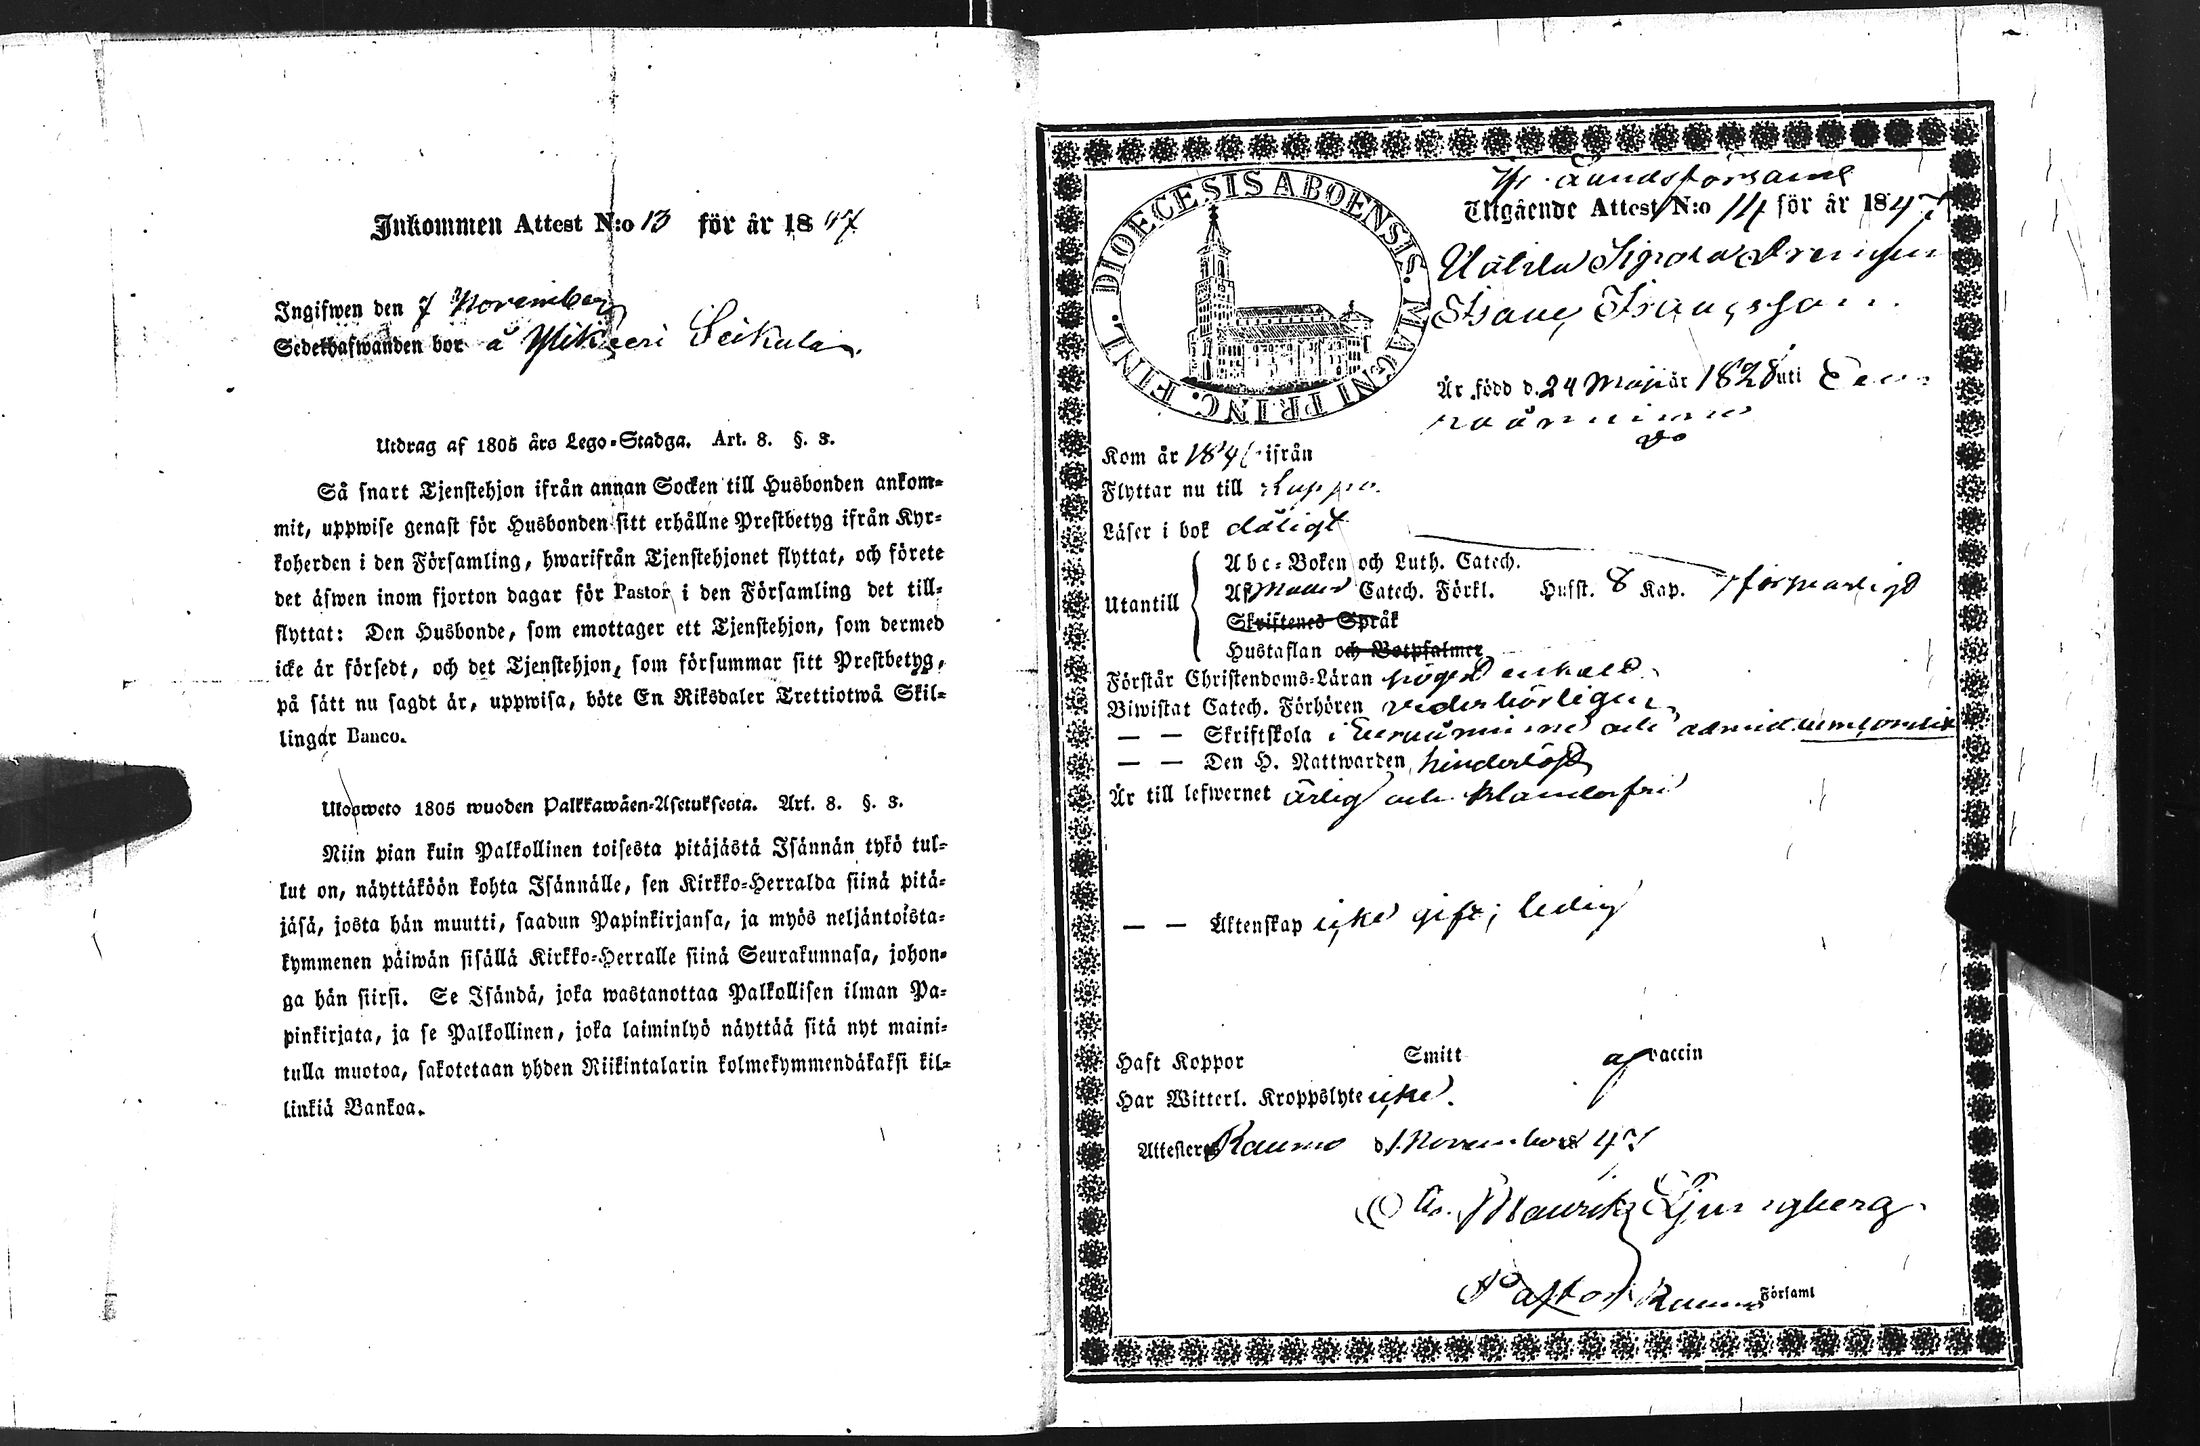 Inkommen Attest N:o 13 för år 1847
Ingifwen den 7 November
Sedelhafwanden bor å Ylikieri Seikula
Utdrag af 1805 års Lego-Stadga. Art. 8. §. 3.
Så snart Tjenstehjon ifrån annan Socken till Husbonden ankom-
mit, uppwise genast för Husbonden sitt erhållne Prestbetyg ifrån Kyr-
koherden i den Församling, hwarifrån Tjenstehjonet flyttat, och förete
det äfwen inom fjorton dagar för Pastor i den Församling det till-
flyttat: Den Husbonde, som emottager ett Tjenstehjon, som dermed
icke är försedt, och det Tjenstehjon, som försummar sitt Prestbetyg,
på sätt nu sagdt är, uppwisa, böte En Riksdaler Trettiotwå Skil-
lingar Banco.
Ulosweto 1805 wuoden Palkkawäen-Asetuksesta. Art. 8. §. 3.
Niin pian kuin Palkollinen toisesta pitäjästä Isännän tykö tul-
lut on, näyttäköön kohta Isännälle, sen Kirkko-Herralda siinä pitä-
jäsä, josta hän muutti, saadun Papinkirjansa, ja myös neljäntoista-
kymmenen päiwän sisällä Kirkko-Herralle siinä Seurakunnasa, johon-
ga hän siirsi. Se Isändä, joka wastanottaa Palkollisen ilman Pa-
pinkirjata, ja se Palkollinen, joka laiminlyö näyttää sitä nyt maini-
tulla muotoa, sakotetaan yhden Riikintalarin kolmekymmendäkaksi kil-
linkiä Bankoa.
DIOECESIS ABOENSIS. MAGNI PRINC. FINL.
Landsförsaml
Utgående Attest N:o 14 för år 1847
Drengen
Isaac Isaacsson
Är född d. 24 Maji år 1828 uti Eu
raåminne
Kom år 184 ifrån do
Flyttar nu till Lappo
Läser i bok dåligt
Utantill
Abc-Boken och Luth. Catech.
Af Möllers Catech. Förkl. Hufst. 8 Kap. försvarligt
Skriftenes Språk
Hustaflan och Botpsalmer
Förstår Christendoms-Läran högst enkelt
Biwistat Catech. Förhören vederbörligen
— — Skriftskola i Euraåminne och admid.
— — Den H. Nattwarden hinderlöst
Är till lefwernet ärlig och klanderfri
— — Äktenskap icke gift; ledig
Haft Koppor Smitt af vaccin
Har Witterl. Kroppslyte icke.
Attesteras Raumo d. 1 November 47
Mauritz Ljungberg
Pastor i Raumo Församl